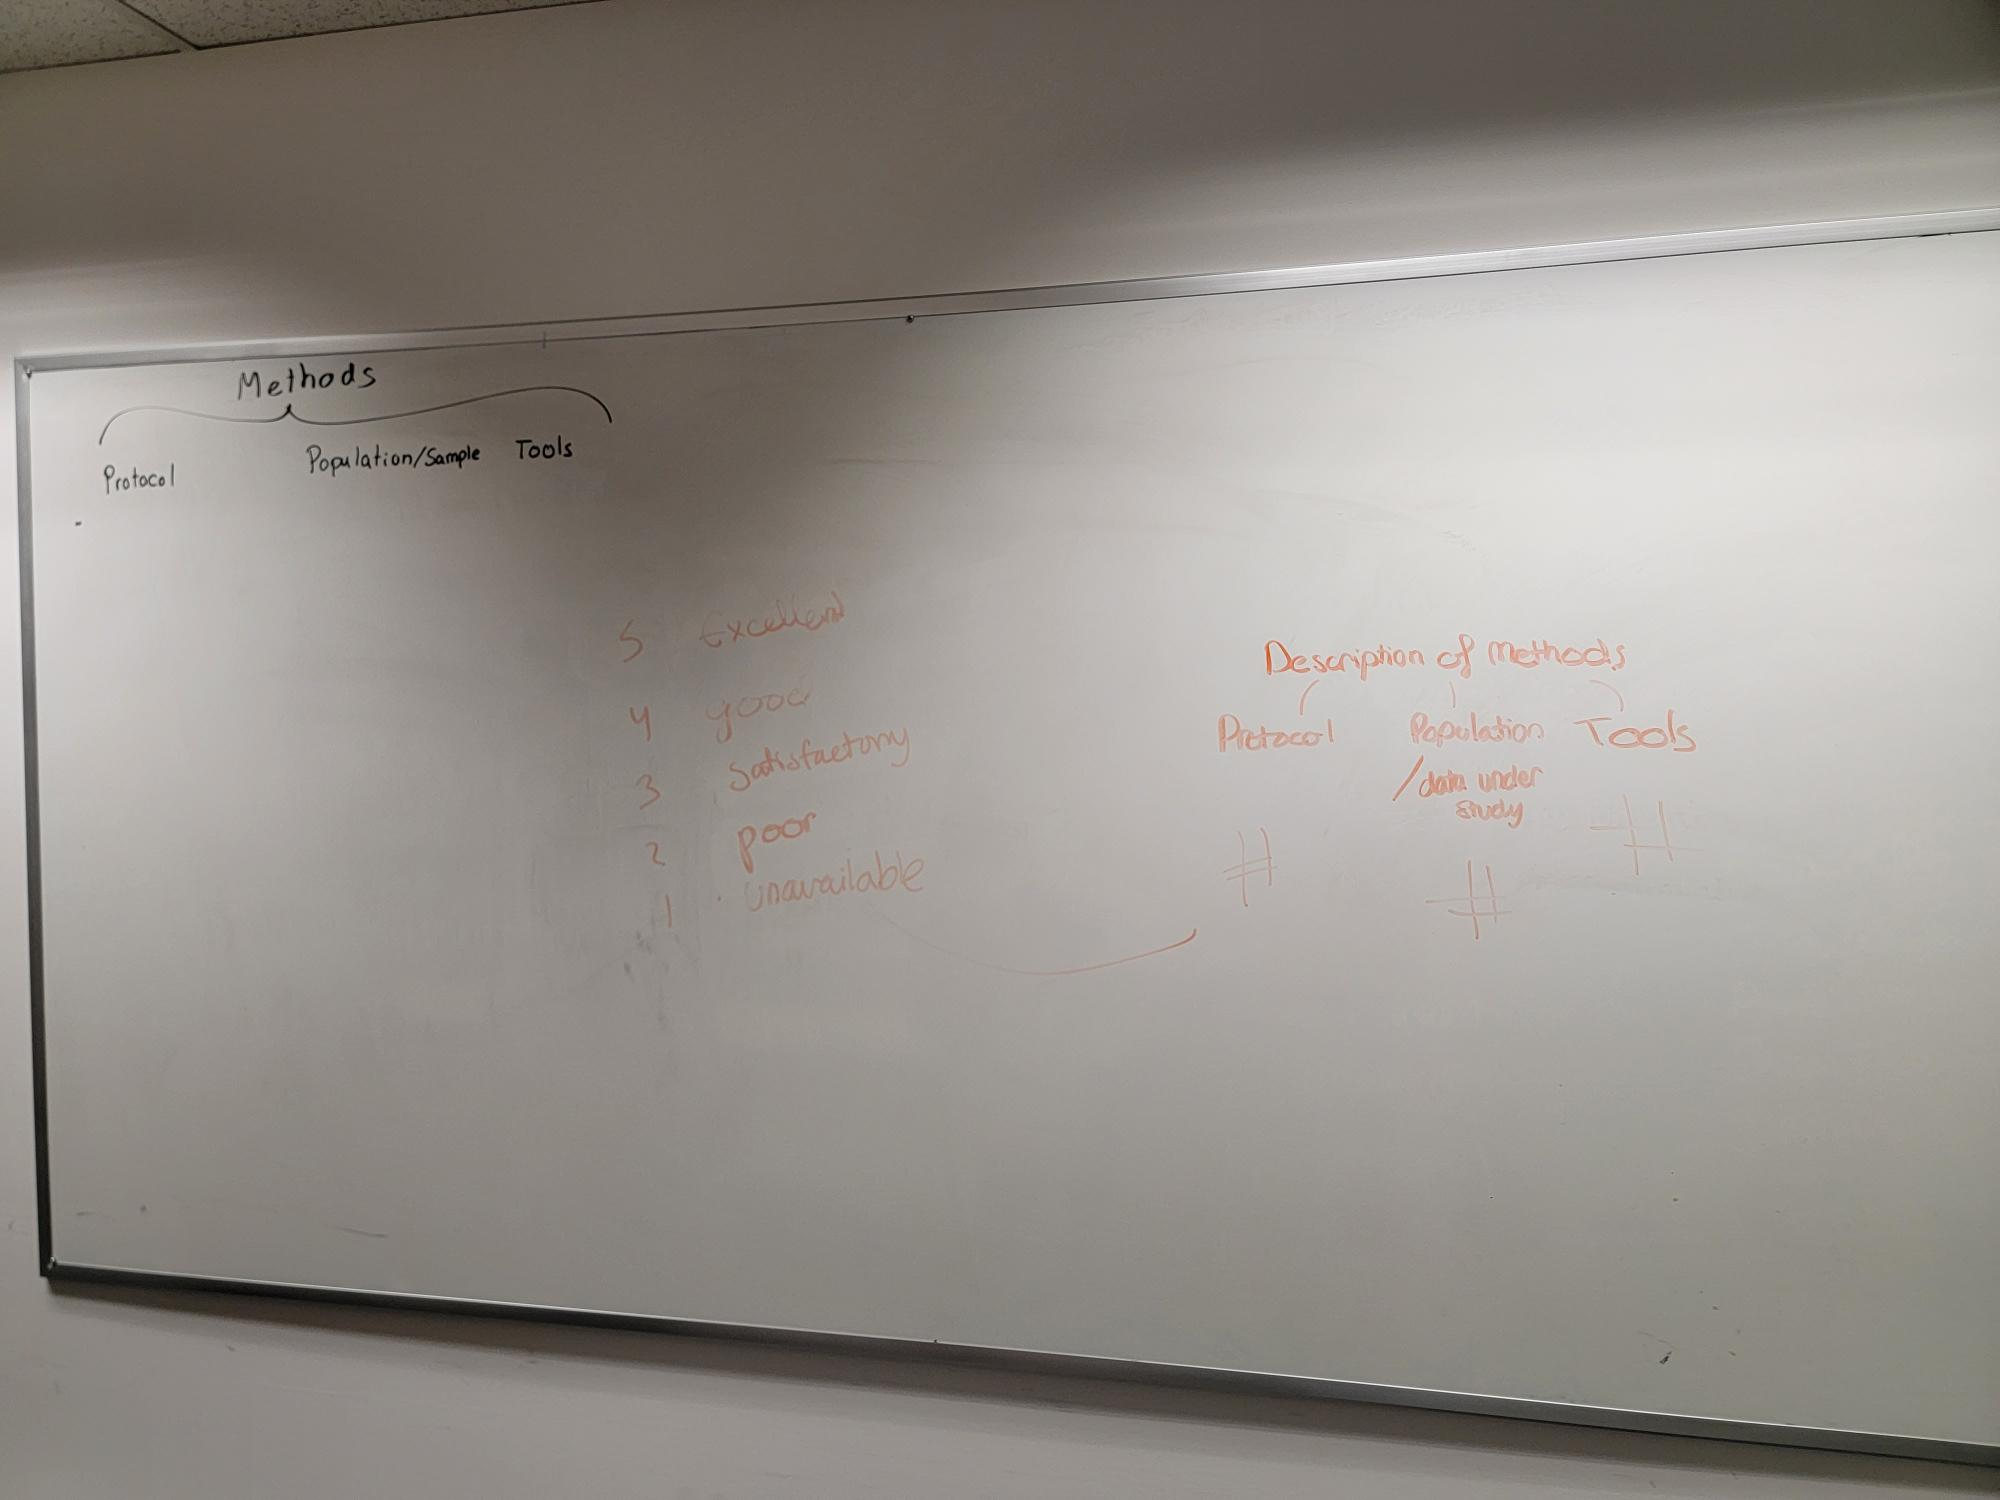 Methods
Protocol Population/Sample Tools
5 Excellent
4 good
3 satisfactory
2 poor
1 unavailable
Description of Methods
Protocol Population Tools
/data under
study
# # #